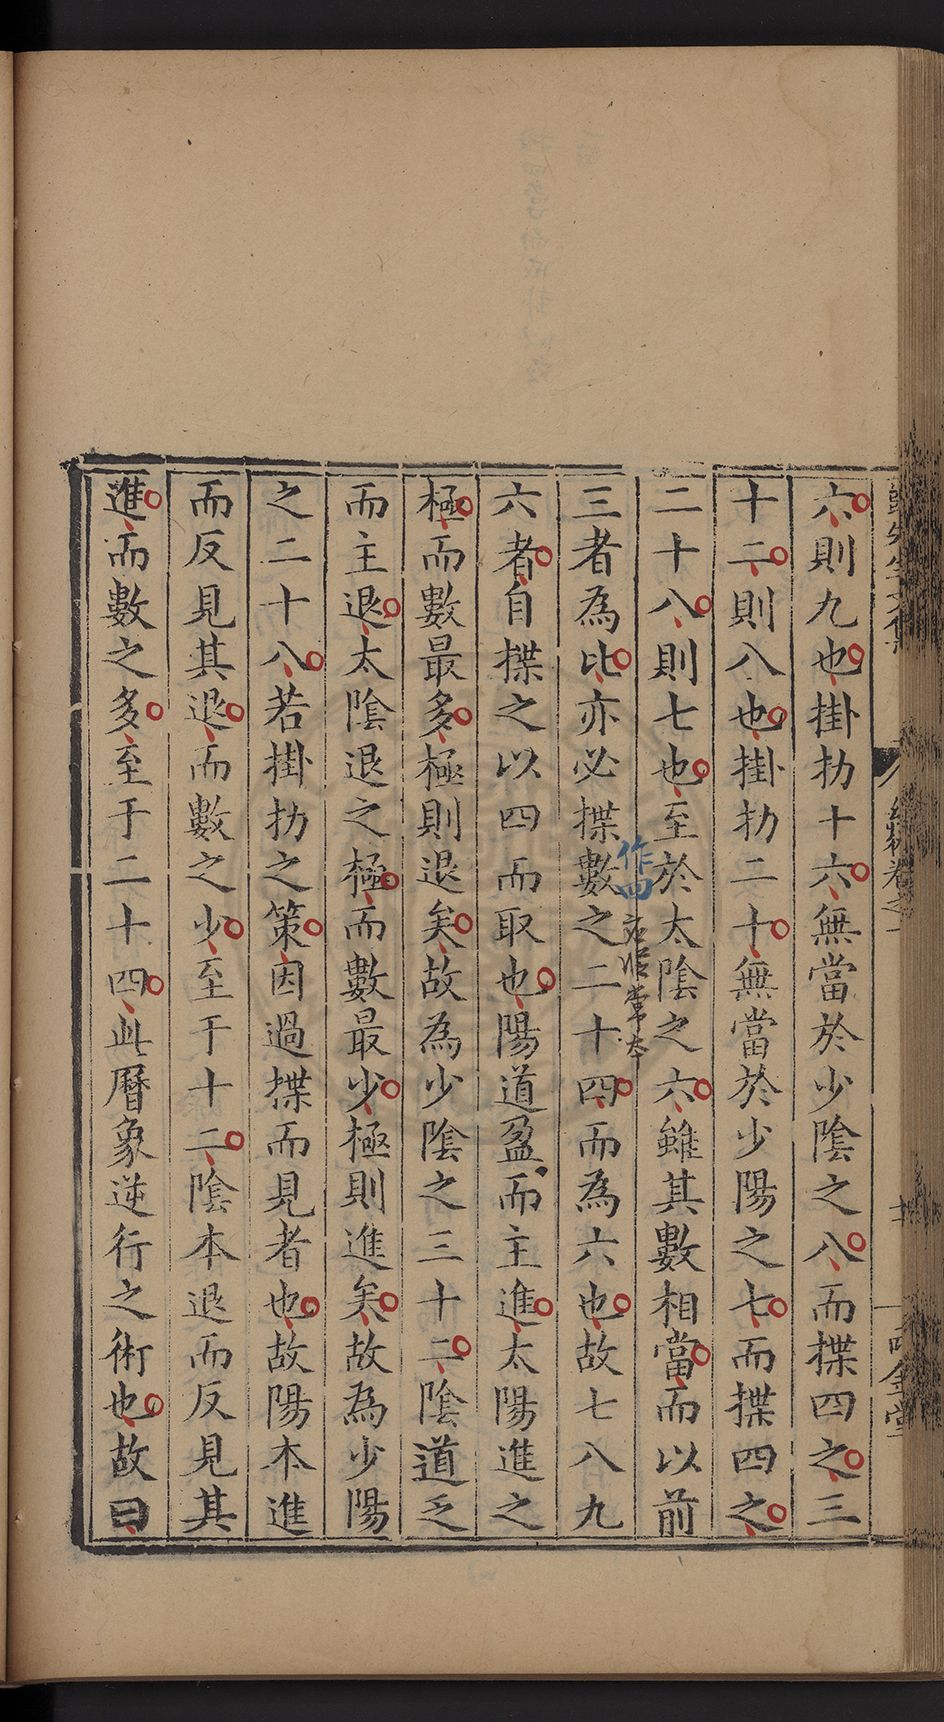 六則九也掛扐十六無當於少陰之八而揲四之三
十二則八也掛扐二十無當於少陽之七而揲四之
二十八則七也至於太陰之六雖其數相當而以前
作四
三者為比亦必揲數之二十四而為六也故七八九
六者自揲之以四而取也陽道盈而主進太陽進之
極而數最多極則退矣故為少陰之三十二陰道乏
而主退太陰退之極而數最少極則進矣故為少陽
之二十八若掛扐之策因過揲而見者也故陽本進
而反見其退而數之少至于十二陰本退而反見其
進而數之多至于二十四此曆象逆行之術也故曰